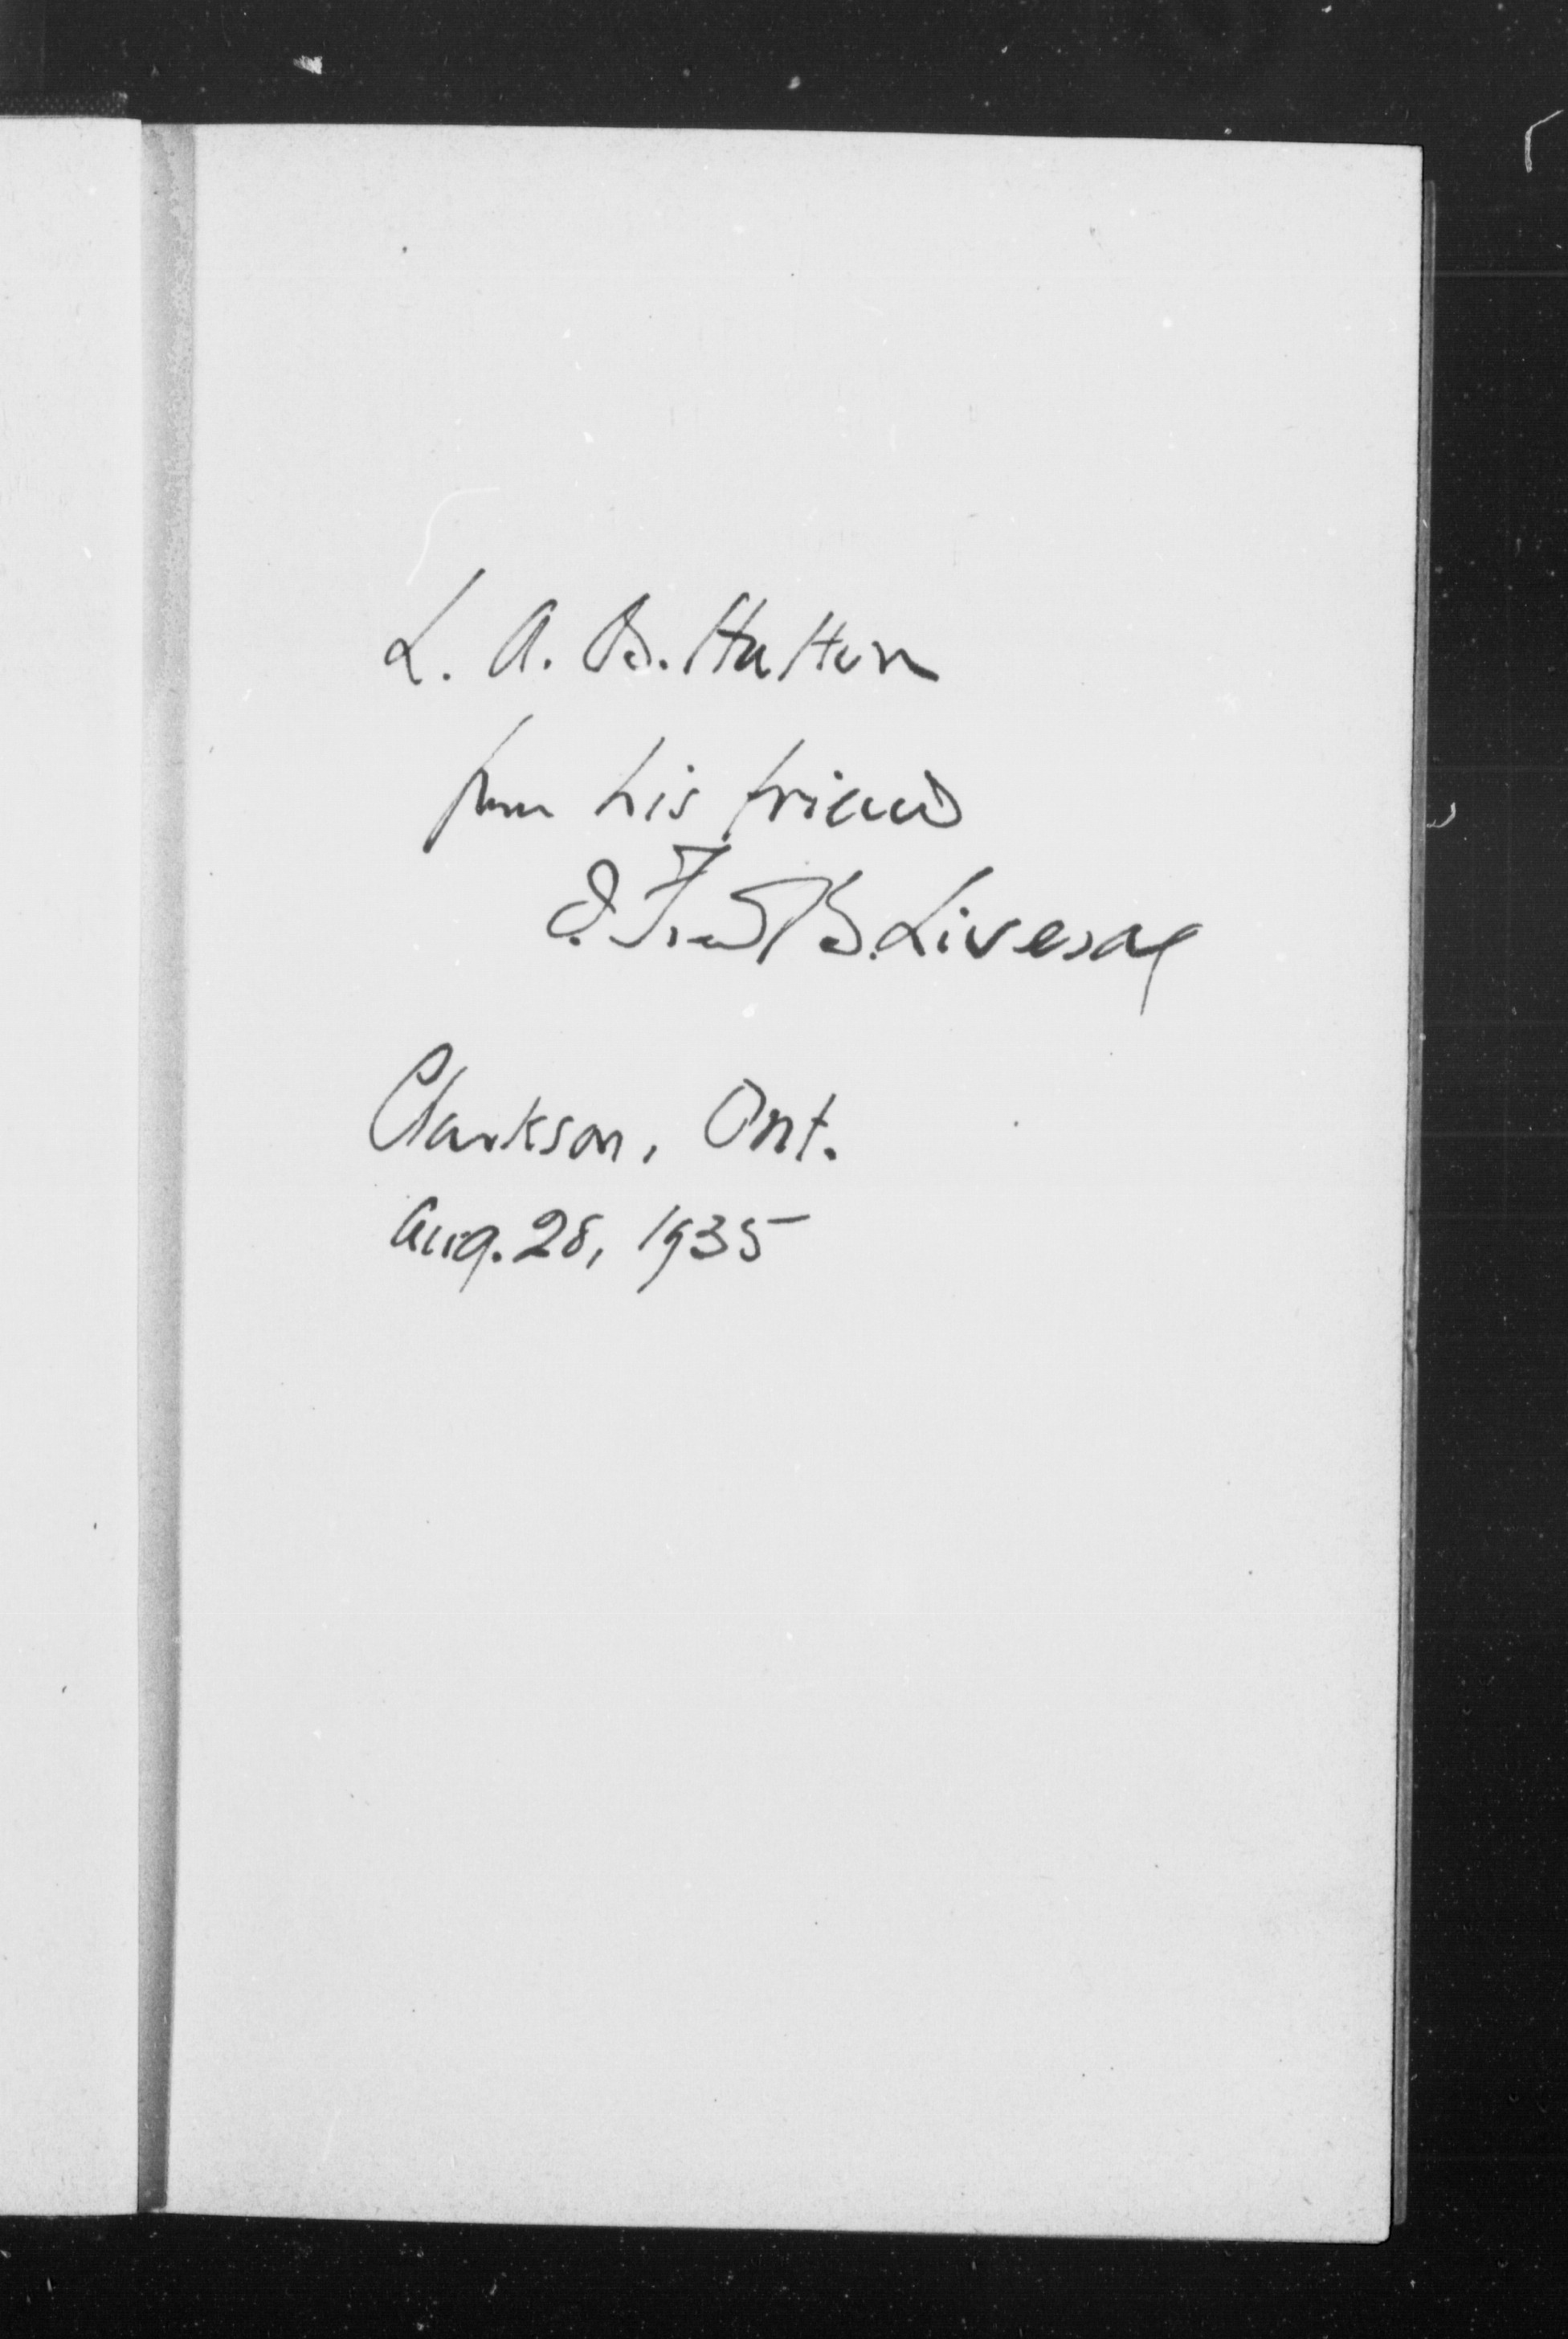 L. A. B. Hutton
from his friend
J. Fred B. Livesay
Clarkson, Ont.
Aug. 28, 1935